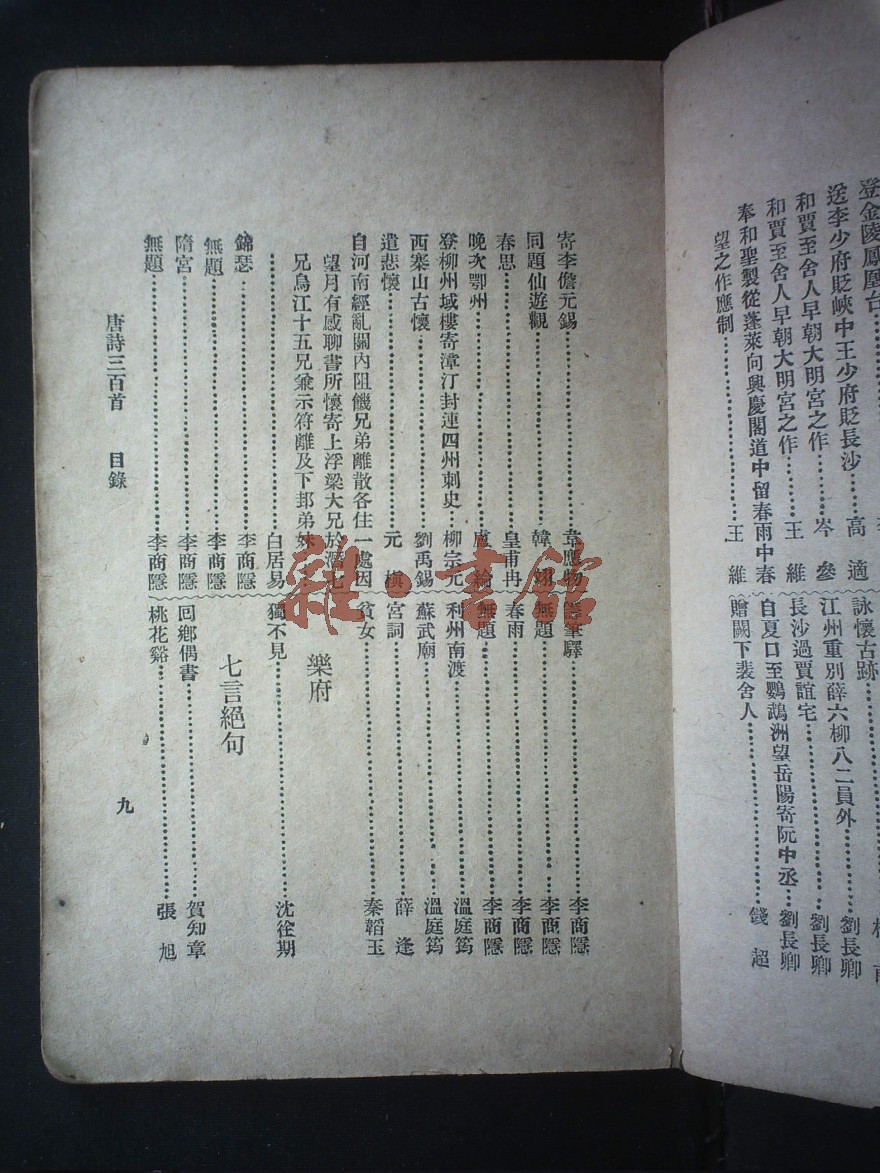 登金陵鳳凰台
送李少府貶峽中王少府貶長沙…高適
和賈至舍人早朝大明宮之作……岑參
和賈至舍人早朝大明宮之作……王維
奉和聖製從蓬萊向興慶閣道中留春雨中春
望之作應制……王維
詠懷古跡
江州重別薛六柳八二員外……劉長卿
長沙過賈誼宅……劉長卿
自夏口至鸚鵡洲望岳陽寄阮中丞…劉長卿
贈闕下裴舍人……錢超
寄李儋元錫……韋應物
同題仙遊觀……韓翃
春思……皇甫冉
晚次鄂州……盧綸
登柳州城樓寄漳汀封連四州刺史…柳宗元
西塞山古懷……劉禹錫
遣悲懷……元稹
自河南經亂關內阻饑兄弟離散各住一處因
望月有感聊書所懷寄上浮梁大兄於潛七
兄烏江十五兄兼示符離及下邽弟妹…
……白居易
錦瑟……李商隱
無題……李商隱
隋宮……李商隱
無題……李商隱
籌筆驛……李商隱
無題……李商隱
春雨……李商隱
無題……李商隱
利州南渡……溫庭筠
蘇武廟……溫庭筠
宮詞……薛逢
貧女……秦韜玉
樂府
獨不見……沈佺期
七言絕句
回鄉偶書……賀知章
桃花谿……張旭
唐詩三百首 目錄
九
雜·書館